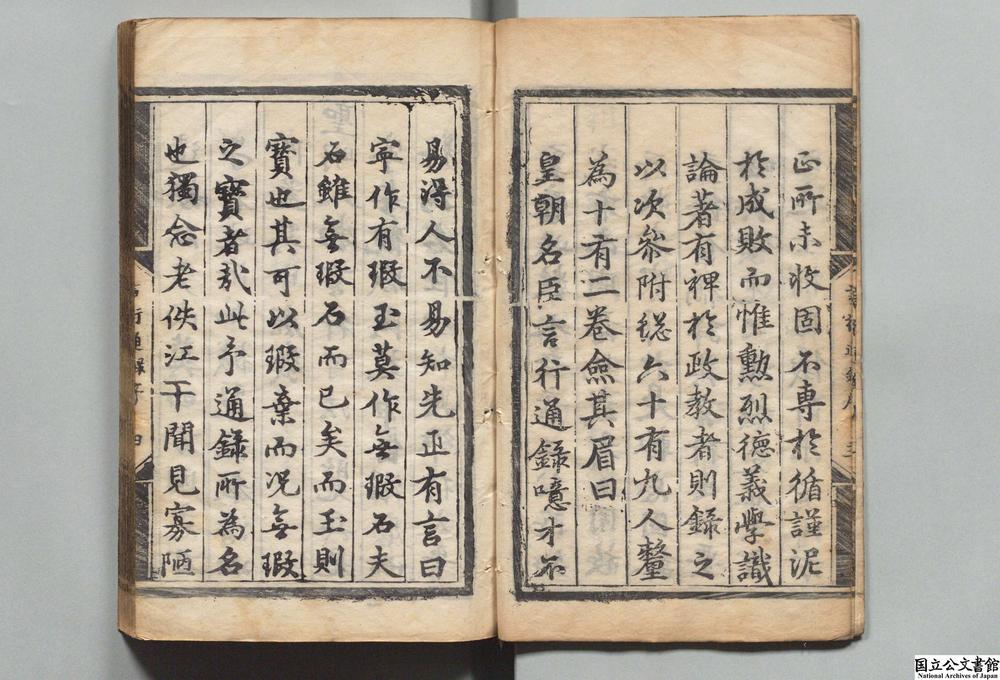 正所未收固不專於循謹泥
於成敗而惟勳烈德義學識
論著有裨於政教者則錄之
以次叅附總六十有九人釐
為十有二卷僉其眉曰
皇朝名臣言行通錄噫才不
易得人不易知先正有言曰
寧作有瑕玉莫作無瑕石夫
石雖無瑕石而已矣而玉則
寳也其可以瑕棄而況無瑕
之寳者㢤此予通錄所為名
也獨念老佚江干聞見寡陋
国立公文書館
National Archives of Japan